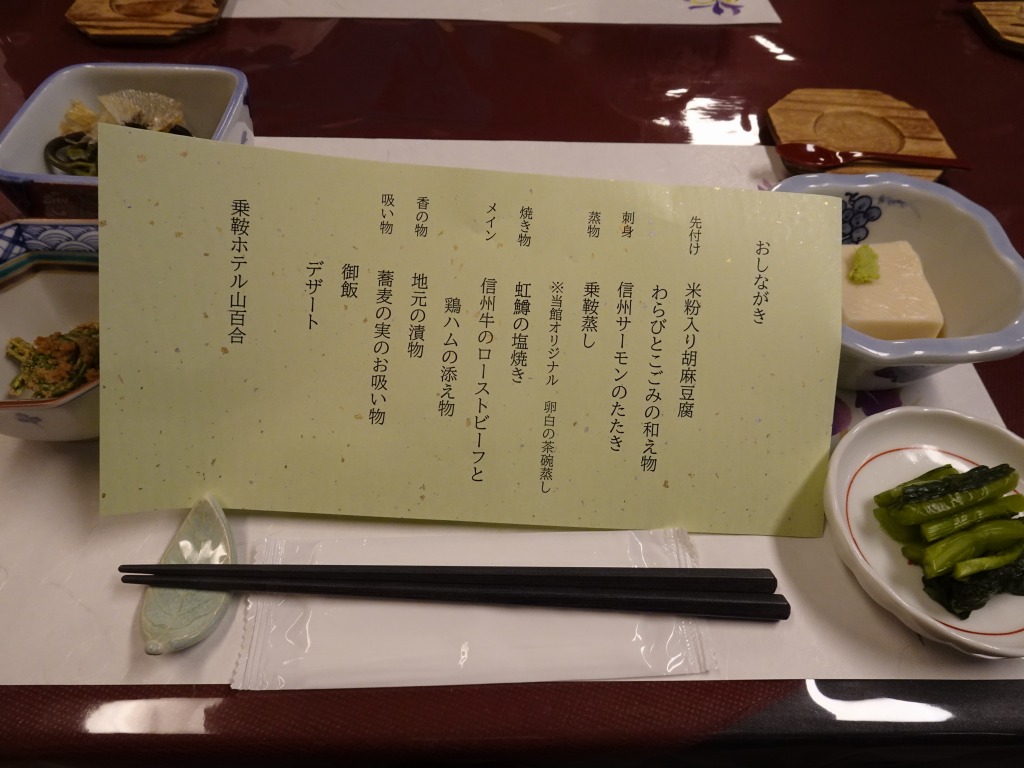 おしながき
先付け 米粉入り胡麻豆腐
わらびとこごみの和え物
刺身 信州サーモンのたたき
蒸物 乗鞍蒸し
※当館オリジナル 卵白の茶碗蒸し
焼き物 虹鱒の塩焼き
メイン 信州牛のローストビーフと
鶏ハムの添え物
香の物 地元の漬物
吸い物 蕎麦の実のお吸い物
御飯
デザート
乗鞍ホテル山百合